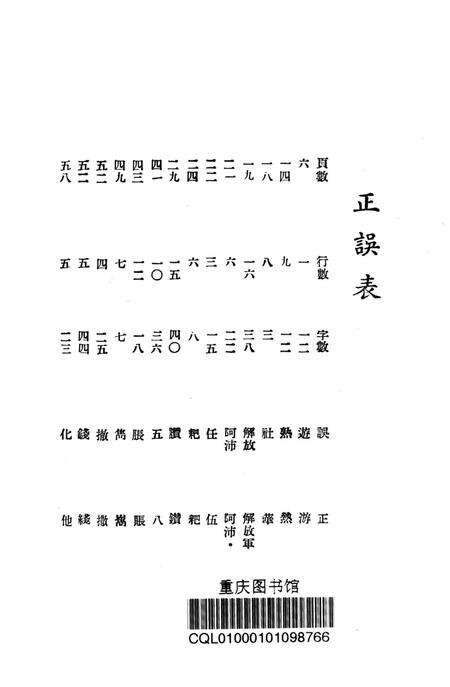 正誤表
頁數 行數 字數 誤 正
六 一 一二 遊 游
一四 九 一二 熟 熱
一八 八 三 社 華
一九 一六 三八 解放 解放軍
二一 六 二二 阿沛 阿沛·
二二 三 一五 任 伍
二四 六 八 粑
二九 一五 四〇 讚 鑽
四一 一〇 三六 五 八
四三 一二 一八 脹 賬
四九 七 七 雋
五二 四 二五 撤 撒
五二 五 四四 錢 綫
五八 五 二三 化 他
重庆图书馆
CQL01000101098766